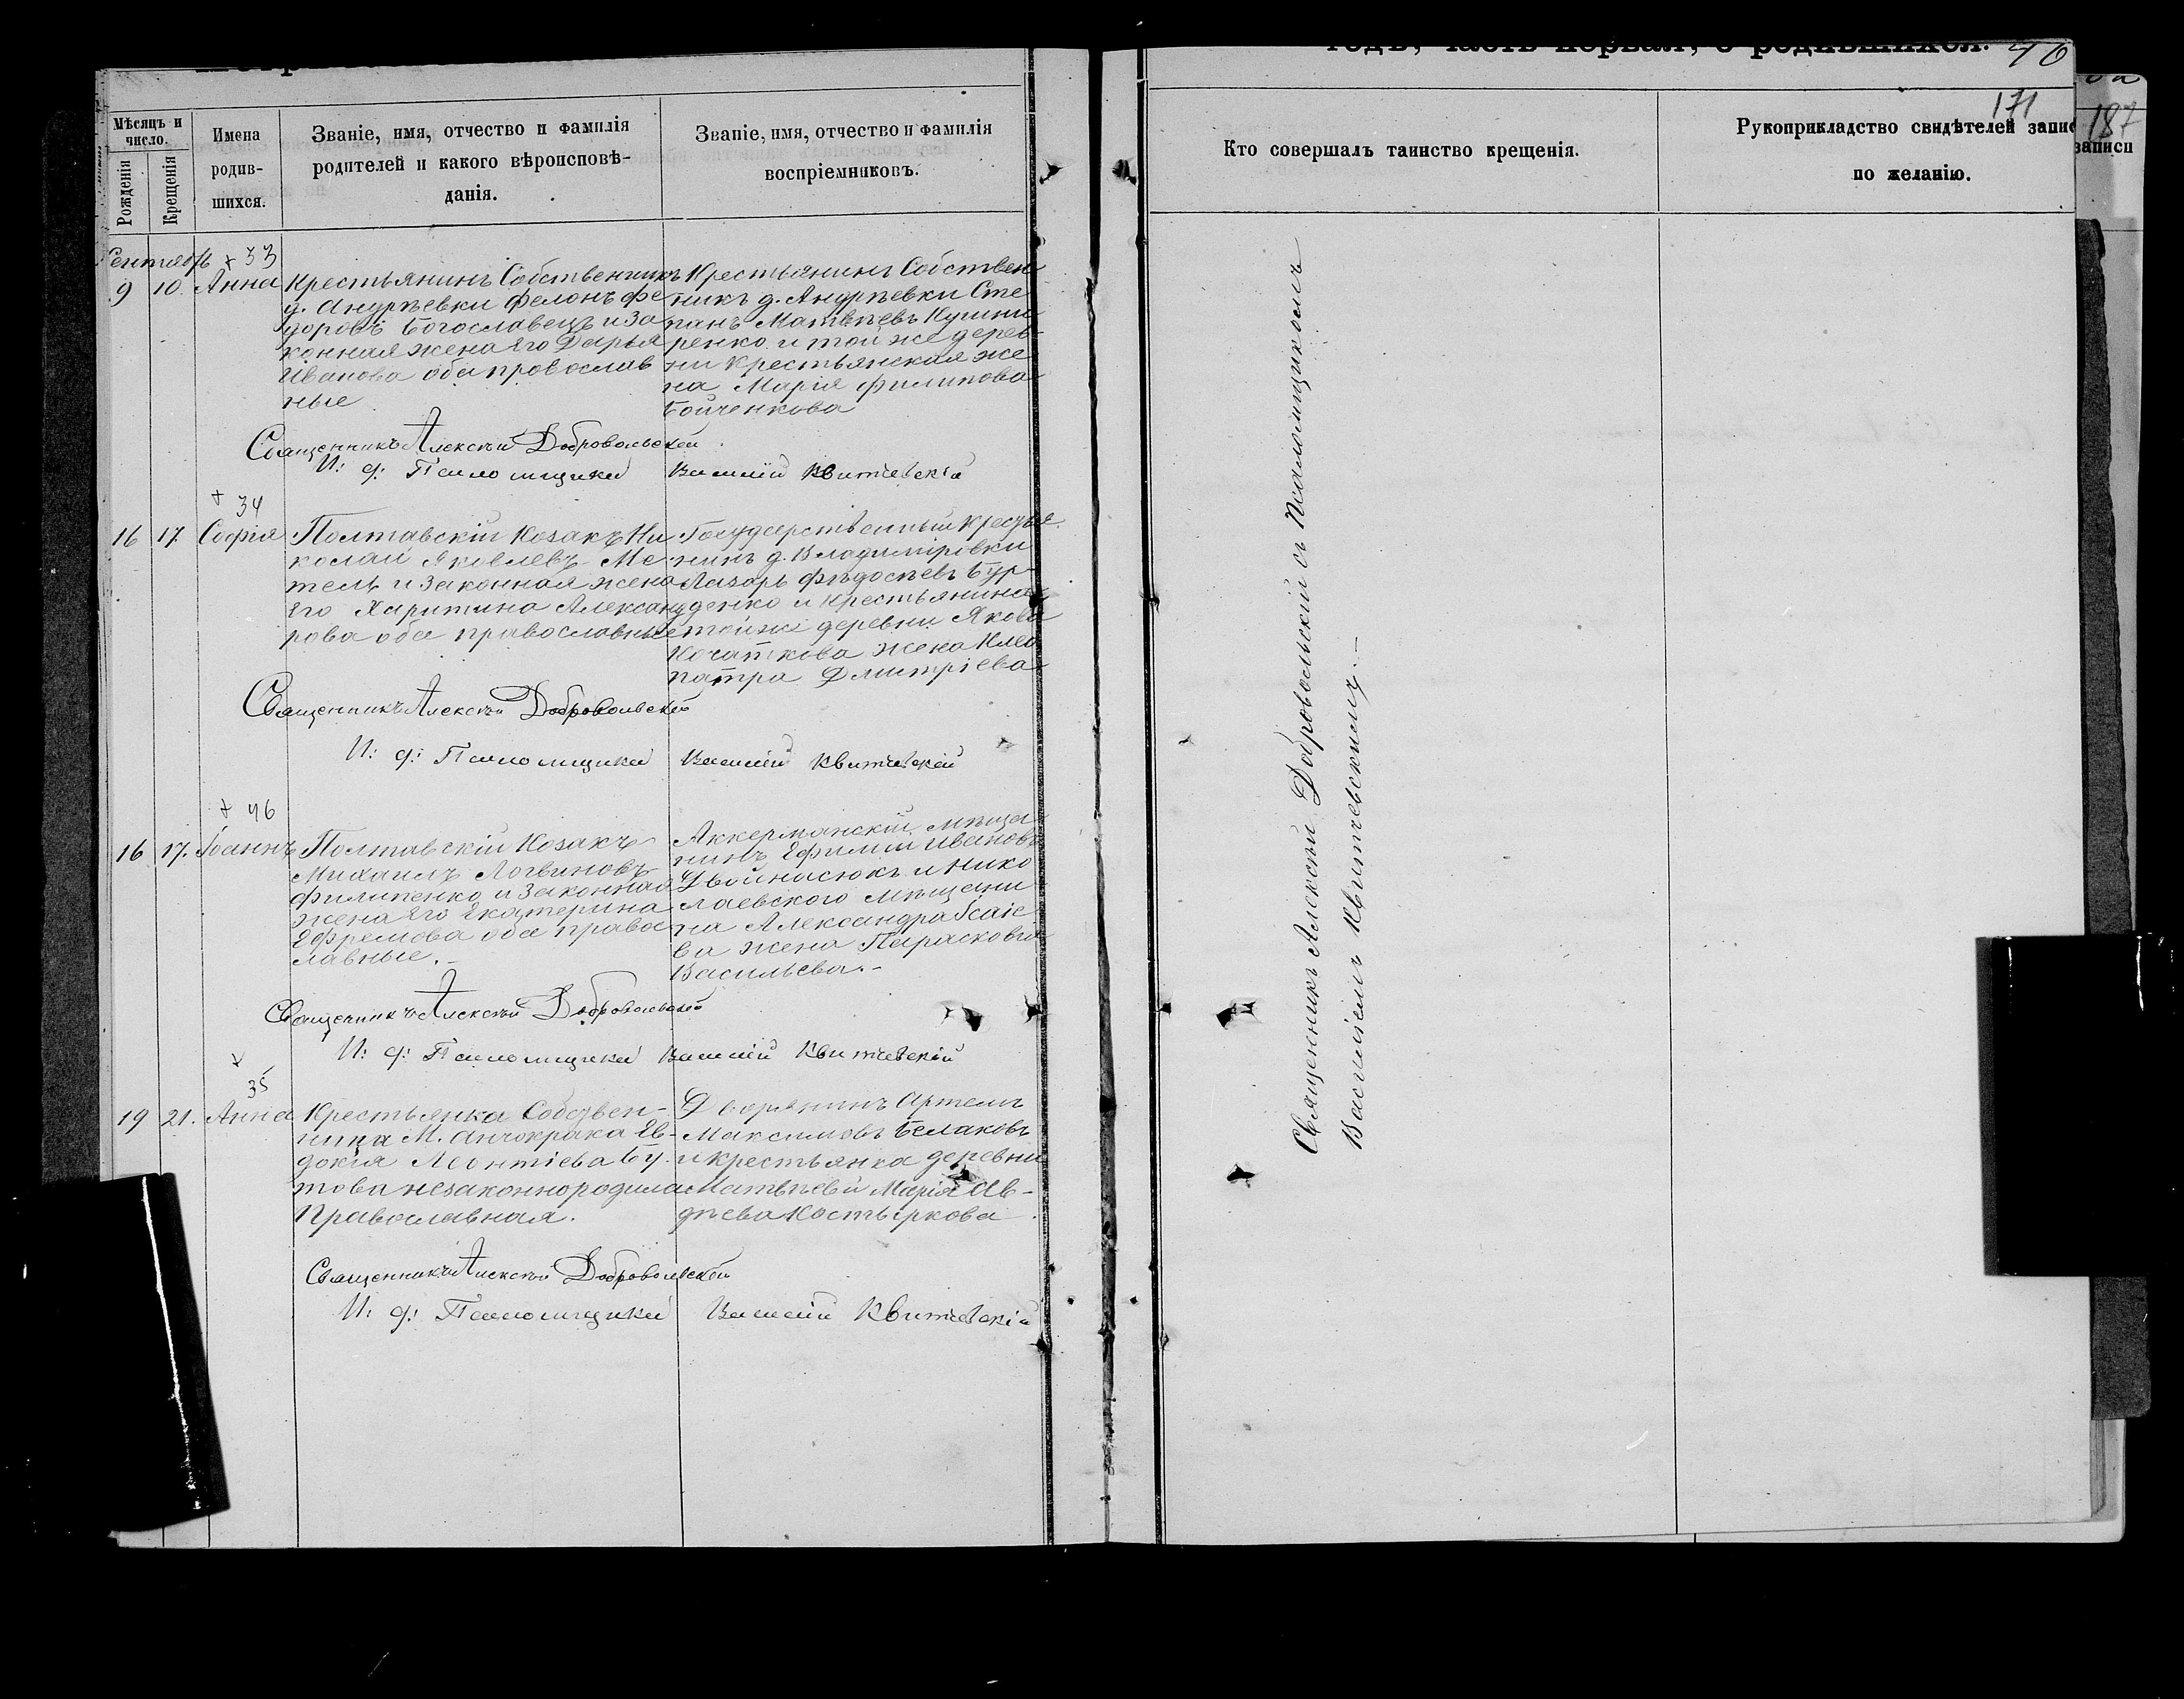 годъ, часть первая, о родившихся. 46
171
187
Мѣсяцъ и число.
Рожденія
Крещенія
Имена
родив-
шихся.
Званіе, имя, отчество и фамилія
родителей и какого вѣроисповѣ-
данія.
Званіе, имя, отчество и фамилія
воспріемниковъ.
Кто совершалъ таинство крещенія.
Рукоприкладство свидѣтелей запис
по желанію.
записи
Сентябрь + 33
9 10 Анна
Крестьянинъ Собственникъ
д. Андрѣевки Фе
доровъ Богославецъ и за
конная жена Его Дарья
Иванова оба провослав
ные
Крестьянинъ Собствен
никъ д. Андрѣевки Сте
панъ Матвѣевъ
ренко и той же дерев
ни крестьянская же
на Марія Филипова
Бойченкова
Священникъ Алексѣй Добровольскій
И: д: Псаломщика Василій Квитчевскій
+ 34
16 17 Софія
Полтавскій Козакъ Ни
колай Яковлевъ Ме
тель и законная жена
Его Харитина Александ
рова оба православные
Государственный крестья
нинъ д. Владиміровки
Лазарь Ѳедосѣевъ Бур
денко и крестьянина
той же деревни Якова
жена Клео
патра Дмитріева
Священникъ Алексѣй Добровольскій
И: д: Псаломщика Василій Квитчевскій
+ 46
16 17. Іоаннъ
Полтавскій Козакъ
Михаилъ Логвиновъ
Филипенко и законная
жена Его Екатерина
Ефремова оба право
славные. –
Аккерманскій мѣща
нинъ Ефимій Ивановъ
Двойнисюкъ и Нико
лаевского мѣщани
на Александра Ісаіе
ва жена Парасковія
Васильева. –
Священникъ Алексѣй Добровольскій
И: д: Псаломщика Василій Квитчевскій
+
35
19 21. Анна
Крестьянка Собствен-
ница М. Анчокрака Ев-
докія Леонтіева Бу
това незаконнородила
Православная.
Дворянинъ Артемъ
Максимовъ Белаковъ
и крестьянка деревни
Матвѣевй Марія Ав-
дѣева Костыркова
Священникъ Алексѣй Добровольскій
И: д: Псаломщика Василій Квитчевскій
Священникъ Алексѣй Добровольскій съ Псаломщикомъ
Василіемъ Квитчевскимъ. –